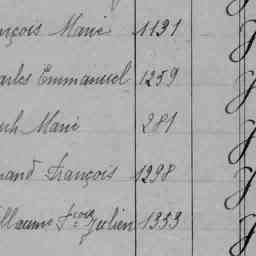 nçois Marie 1131
arles Emmanuel 1259
eph Marie 281
mand François 1298
illaume Fçois Julien 1353